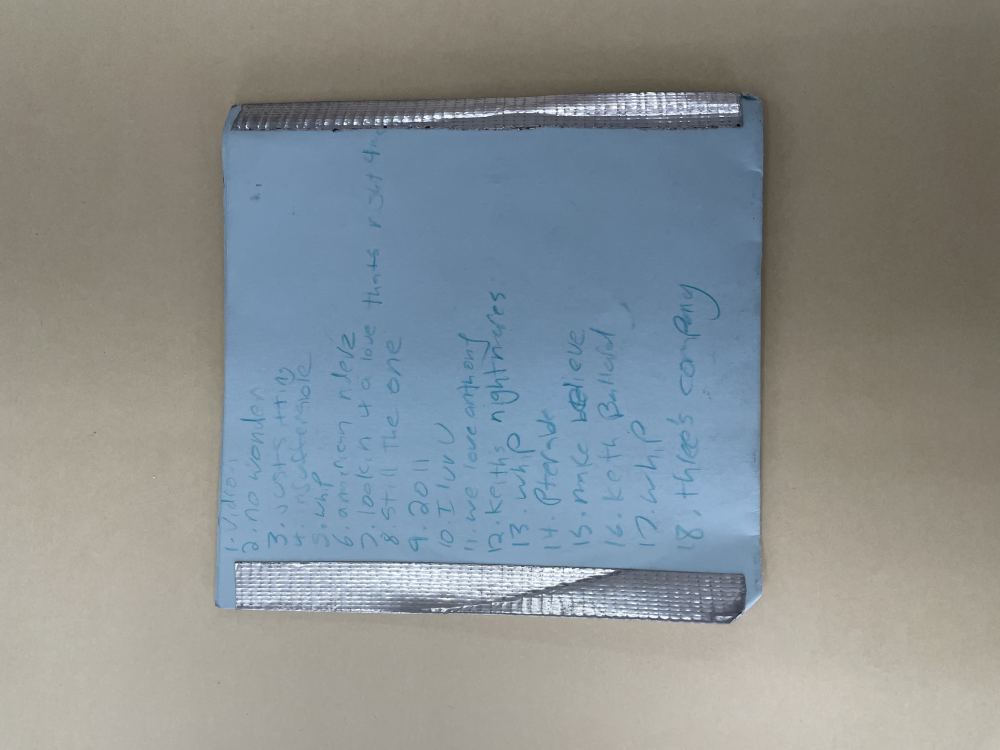 1. Video
2. no wonder
3. justs ttny
4. insufferable
5. whip
6. amirican riderz
7. lookin 4 a love thats right 4 m
8. still the one
9. 2011
10. I luv U
11. we love anthony
12. Keiths nightmares
13. whip
14.
15. make believe
16. Keith Bullard
17. whip
18. three's company